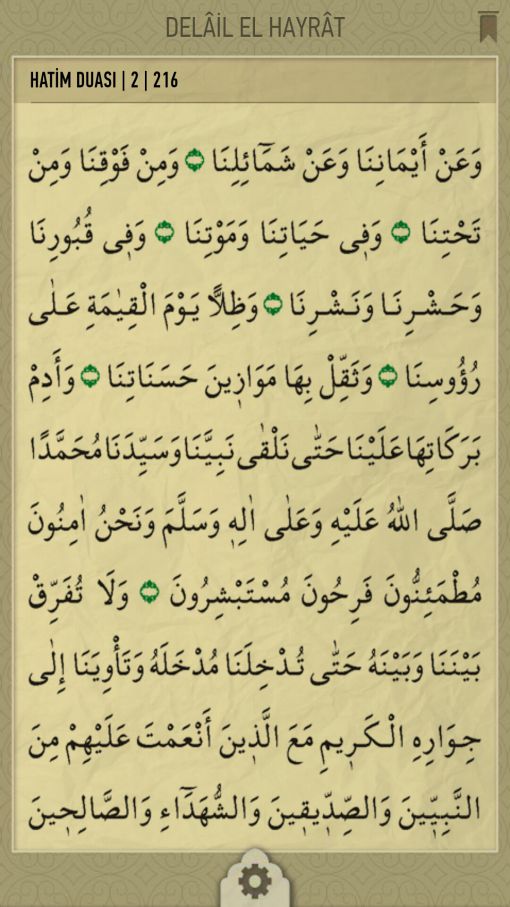 DELÂİL EL HAYRÂT
HATİM DUASI | 2 | 216
وَعَنْ أَيْمَانِنَا وَعَنْ شَمَٓائِلِنَا ۝ وَمِنْ فَوْقِنَا وَمِنْ
تَحْتِنَا ۝ وَفٖي حَيَاتِنَا وَمَوْتِنَا ۝ وَفٖي قُبُورِنَا
وَحَشْرِنَا وَنَشْرِنَا ۝ وَظِلًّا يَوْمَ الْقِيٰمَةِ عَلٰى
رُؤُوسِنَا ۝ وَثَقِّلْ بِهَا مَوَازٖينَ حَسَنَاتِنَا ۝ وَأَدِمْ
بَرَكَاتِهَا عَلَيْنَا حَتّٰى نَلْقٰى نَبِيَّنَا وَسَيِّدَنَا مُحَمَّدًا
صَلَّى اللهُ عَلَيْهِ وَعَلٰى اٰلِهٖ وَسَلَّمَ وَنَحْنُ اٰمِنُونَ
مُطْمَئِنُّونَ فَرِحُونَ مُسْتَبْشِرُونَ ۝ وَلَا تُفَرِّقْ
بَيْنَنَا وَبَيْنَهُ حَتّٰى تُدْخِلَنَا مُدْخَلَهُ وَتَأْوِيَنَا إِلٰى
جِوَارِهِ الْكَرٖيمِ مَعَ الَّذٖينَ أَنْعَمْتَ عَلَيْهِمْ مِنَ
النَّبِيّٖينَ وَالصِّدّٖيقٖينَ وَالشُّهَدَٓاءِ وَالصَّالِحٖينَ